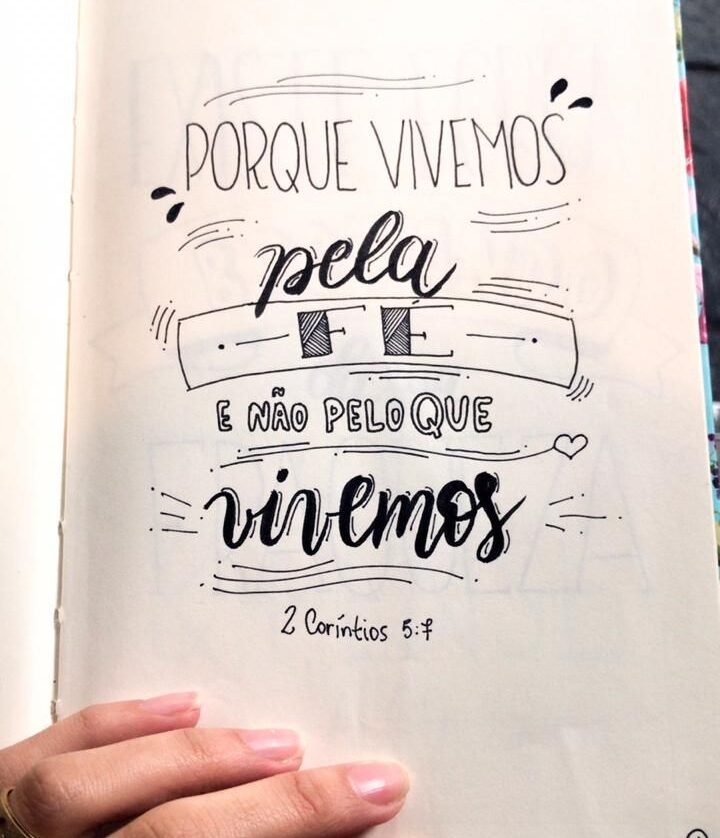 PORQUE VIVEMOS
pela
FÉ
E NÃO PELO QUE
vivemos
2 Coríntios 5:7